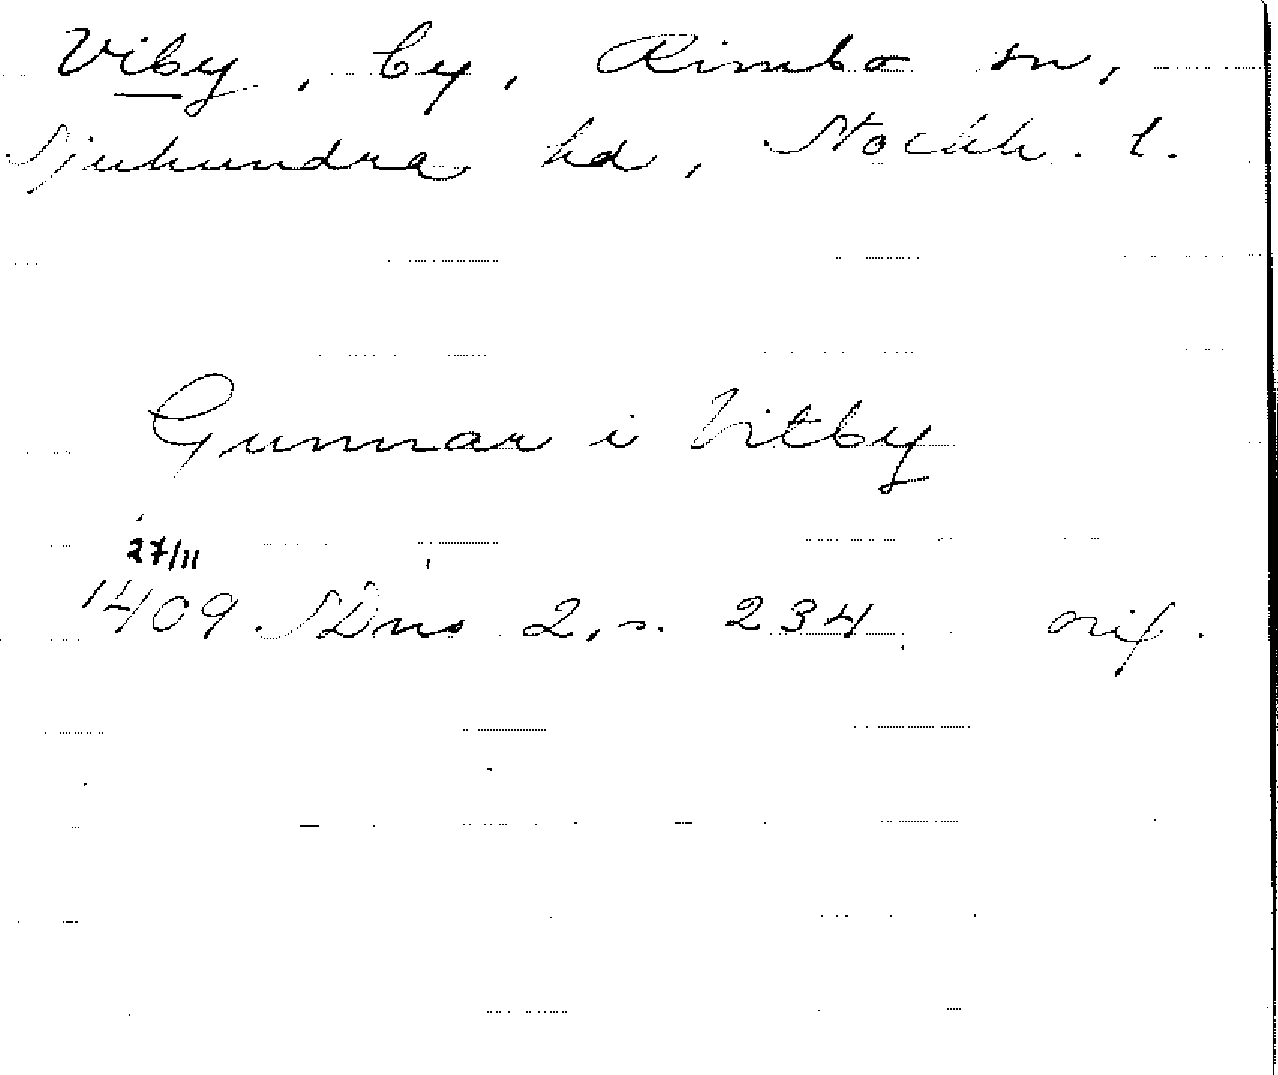 Viby, by, Rimbo sn,
Sjuhundra hd, Stockh. l.
Gunnar i Vitby
27/11
1409 SDns 2, s. 234 orig.